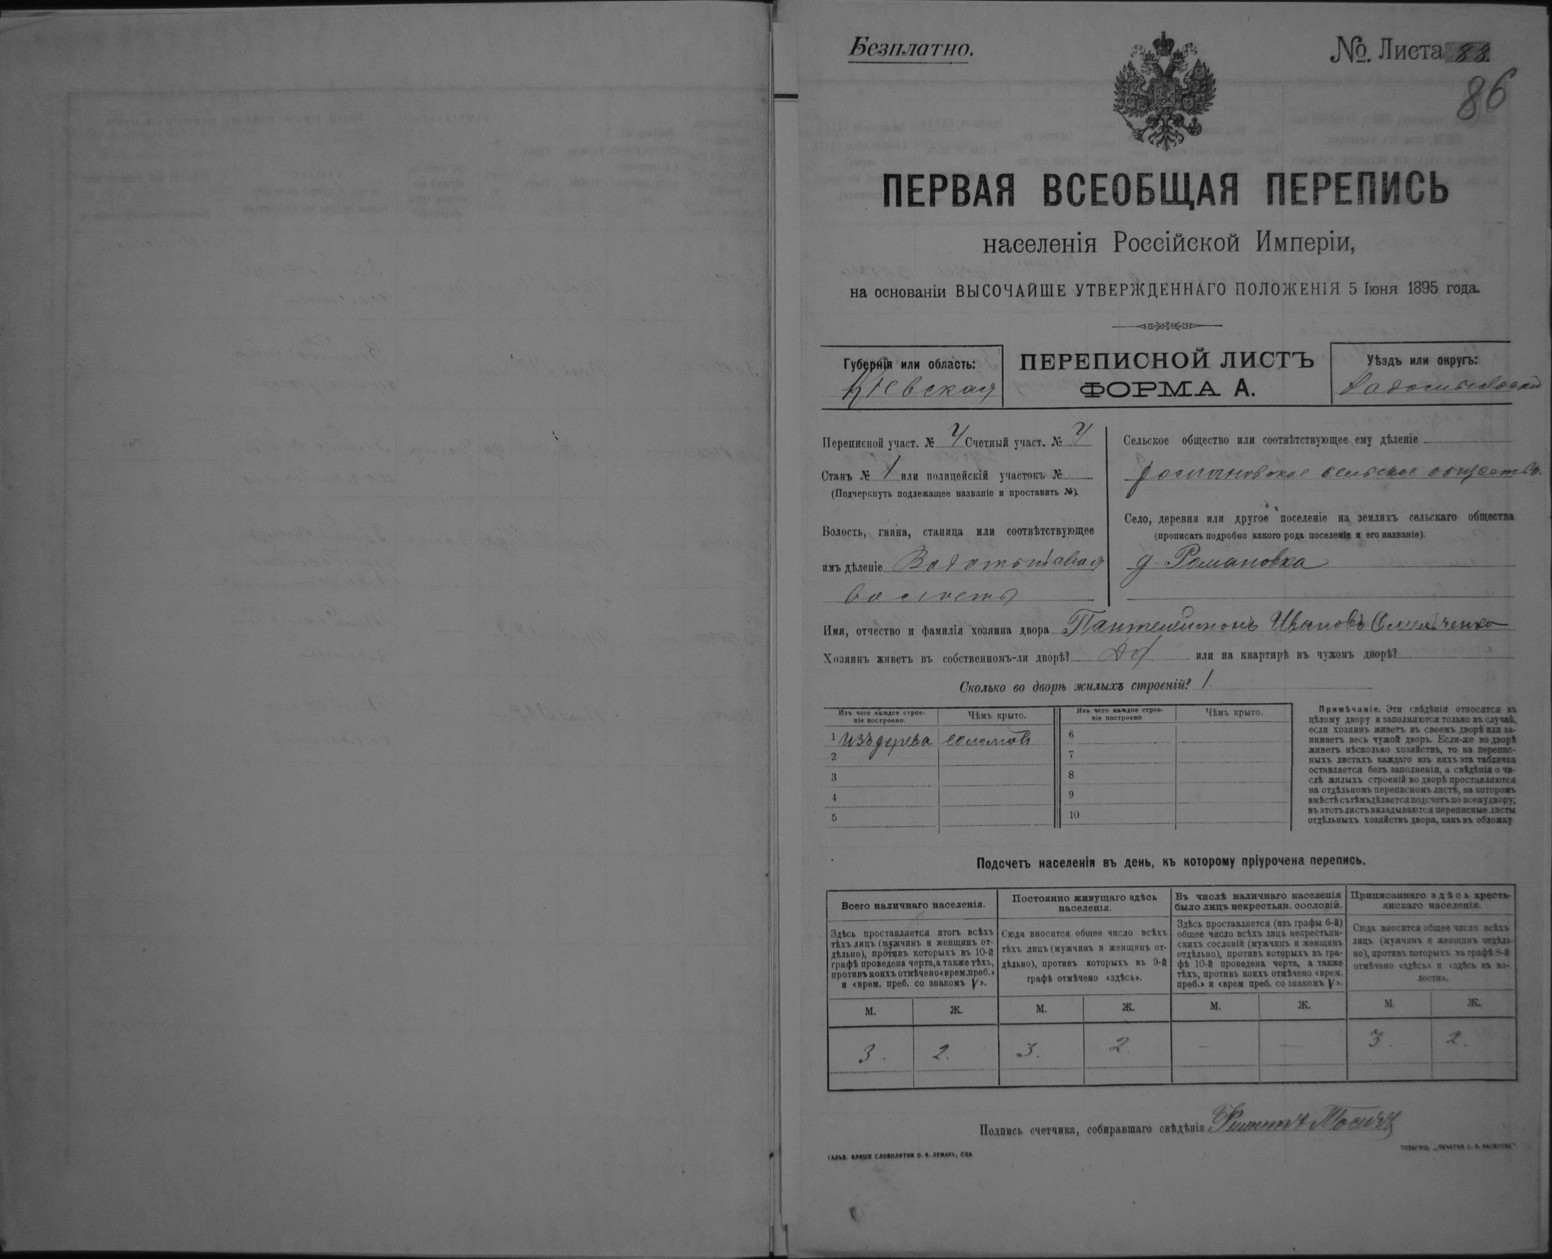 Безплатно.
№. Листа
86
ПЕРВАЯ ВСЕОБЩАЯ ПЕРЕПИСЬ
населенія Россійской Имперіи,
на основаніи ВЫСОЧАЙШЕ УТВЕРЖДЕННАГО ПОЛОЖЕНІЯ 5 Іюня 1895 года.
Губернія или область:
Кіевская
ПЕРЕПИСНОЙ ЛИСТЪ
ФОРМА А.
Уѣздъ или округъ:
Переписной участ. № 4 Счетный участ. № 4
Станъ № 1 или полицейскій участокъ №
(Подчеркнуть подлежащее названіе и проставить №).
Волость, гмина, станица или соотвѣтствующее
имъ дѣленіе
волость
Сельское общество или соотвѣтствующее ему дѣленіе
сельское общество.
Село, деревня или другое поселеніе на земляхъ сельскаго общества
(прописать подробно какого рода поселеніе и его названіе).
д. Романовка
Имя, отчество и фамилія хозяина двора Пантелеймонъ Ивановъ Омельченко
Хозяинъ живетъ въ собственномъ-ли дворѣ? да или на квартирѣ въ чужомъ дворѣ?
Сколько во дворѣ жилыхъ строеній? 1
Изъ чего каждое строе-
ніе построено.
Чѣмъ крыто.
Изъ чего каждое строе-
ніе построено
Чѣмъ крыто.
1 изъ дерева соломой
2
3
4
5
6
7
8
9
10
Примѣчаніе. Эти свѣдѣнія относятся къ
цѣлому двору и заполняются только въ случаѣ,
если хозяинъ живетъ въ своемъ дворѣ или за-
нимаетъ весь чужой дворъ. Если-же во дворѣ
живетъ нѣсколько хозяйствъ, то на перепис-
ныхъ листахъ каждаго изъ нихъ эта табличка
оставляется безъ заполненія, а свѣдѣнія о чи-
слѣ жилыхъ строеній во дворѣ проставляются
на отдѣльномъ переписномъ листѣ, на которомъ
вмѣстѣ съ тѣмъ дѣлается подсчетъ по всему двору;
въ этотъ листъ вкладываются переписные листы
отдѣльныхъ хозяйствъ двора, какъ въ обложку
Подсчетъ населенія въ день, къ которому пріурочена перепись.
Всего наличнаго населенія.
Здѣсь проставляется итогъ всѣхъ
тѣхъ лицъ (мужчинъ и женщинъ от-
дѣльно), противъ которыхъ въ 10-й
графѣ проведена черта, а также тѣхъ,
противъ коихъ отмѣчено «врем. преб.»
и «врем. преб. со знакомъ V».
Постоянно живущаго здѣсь
населенія.
Сюда вносится общее число всѣхъ
тѣхъ лицъ (мужчинъ и женщинъ от-
дѣльно), противъ которыхъ въ 9-й
графѣ отмѣчено «здѣсь».
Въ числѣ наличнаго населенія
было лицъ некрестьян. сословій.
Здѣсь проставляется (изъ графы 6-й)
общее число всѣхъ лицъ некрестьян-
скихъ сословій (мужчинъ и женщинъ
отдѣльно), противъ которыхъ въ гра-
фѣ 10-й проведена черта, а также
тѣхъ, противъ коихъ отмѣчено «врем.
преб.» и «врем преб. со знакомъ V».
Приписаннаго здѣсь кресть-
янскаго населенія.
Сюда вносится общее число всѣхъ
лицъ (мужчинъ и женщинъ отдѣль-
но), противъ которыхъ въ графѣ 8-й
отмѣчено «здѣсь» и «здѣсь въ во-
лости».
М. Ж. М. Ж. М. Ж. М. Ж.
3. 2. 3. 2 — — 3. 2.
Подпись счетчика, собиравшаго свѣдѣнія
ГАЛЬВ. КЛИШЕ СЛОВОЛИТНИ О. И. ЛЕМАНЪ, СПБ